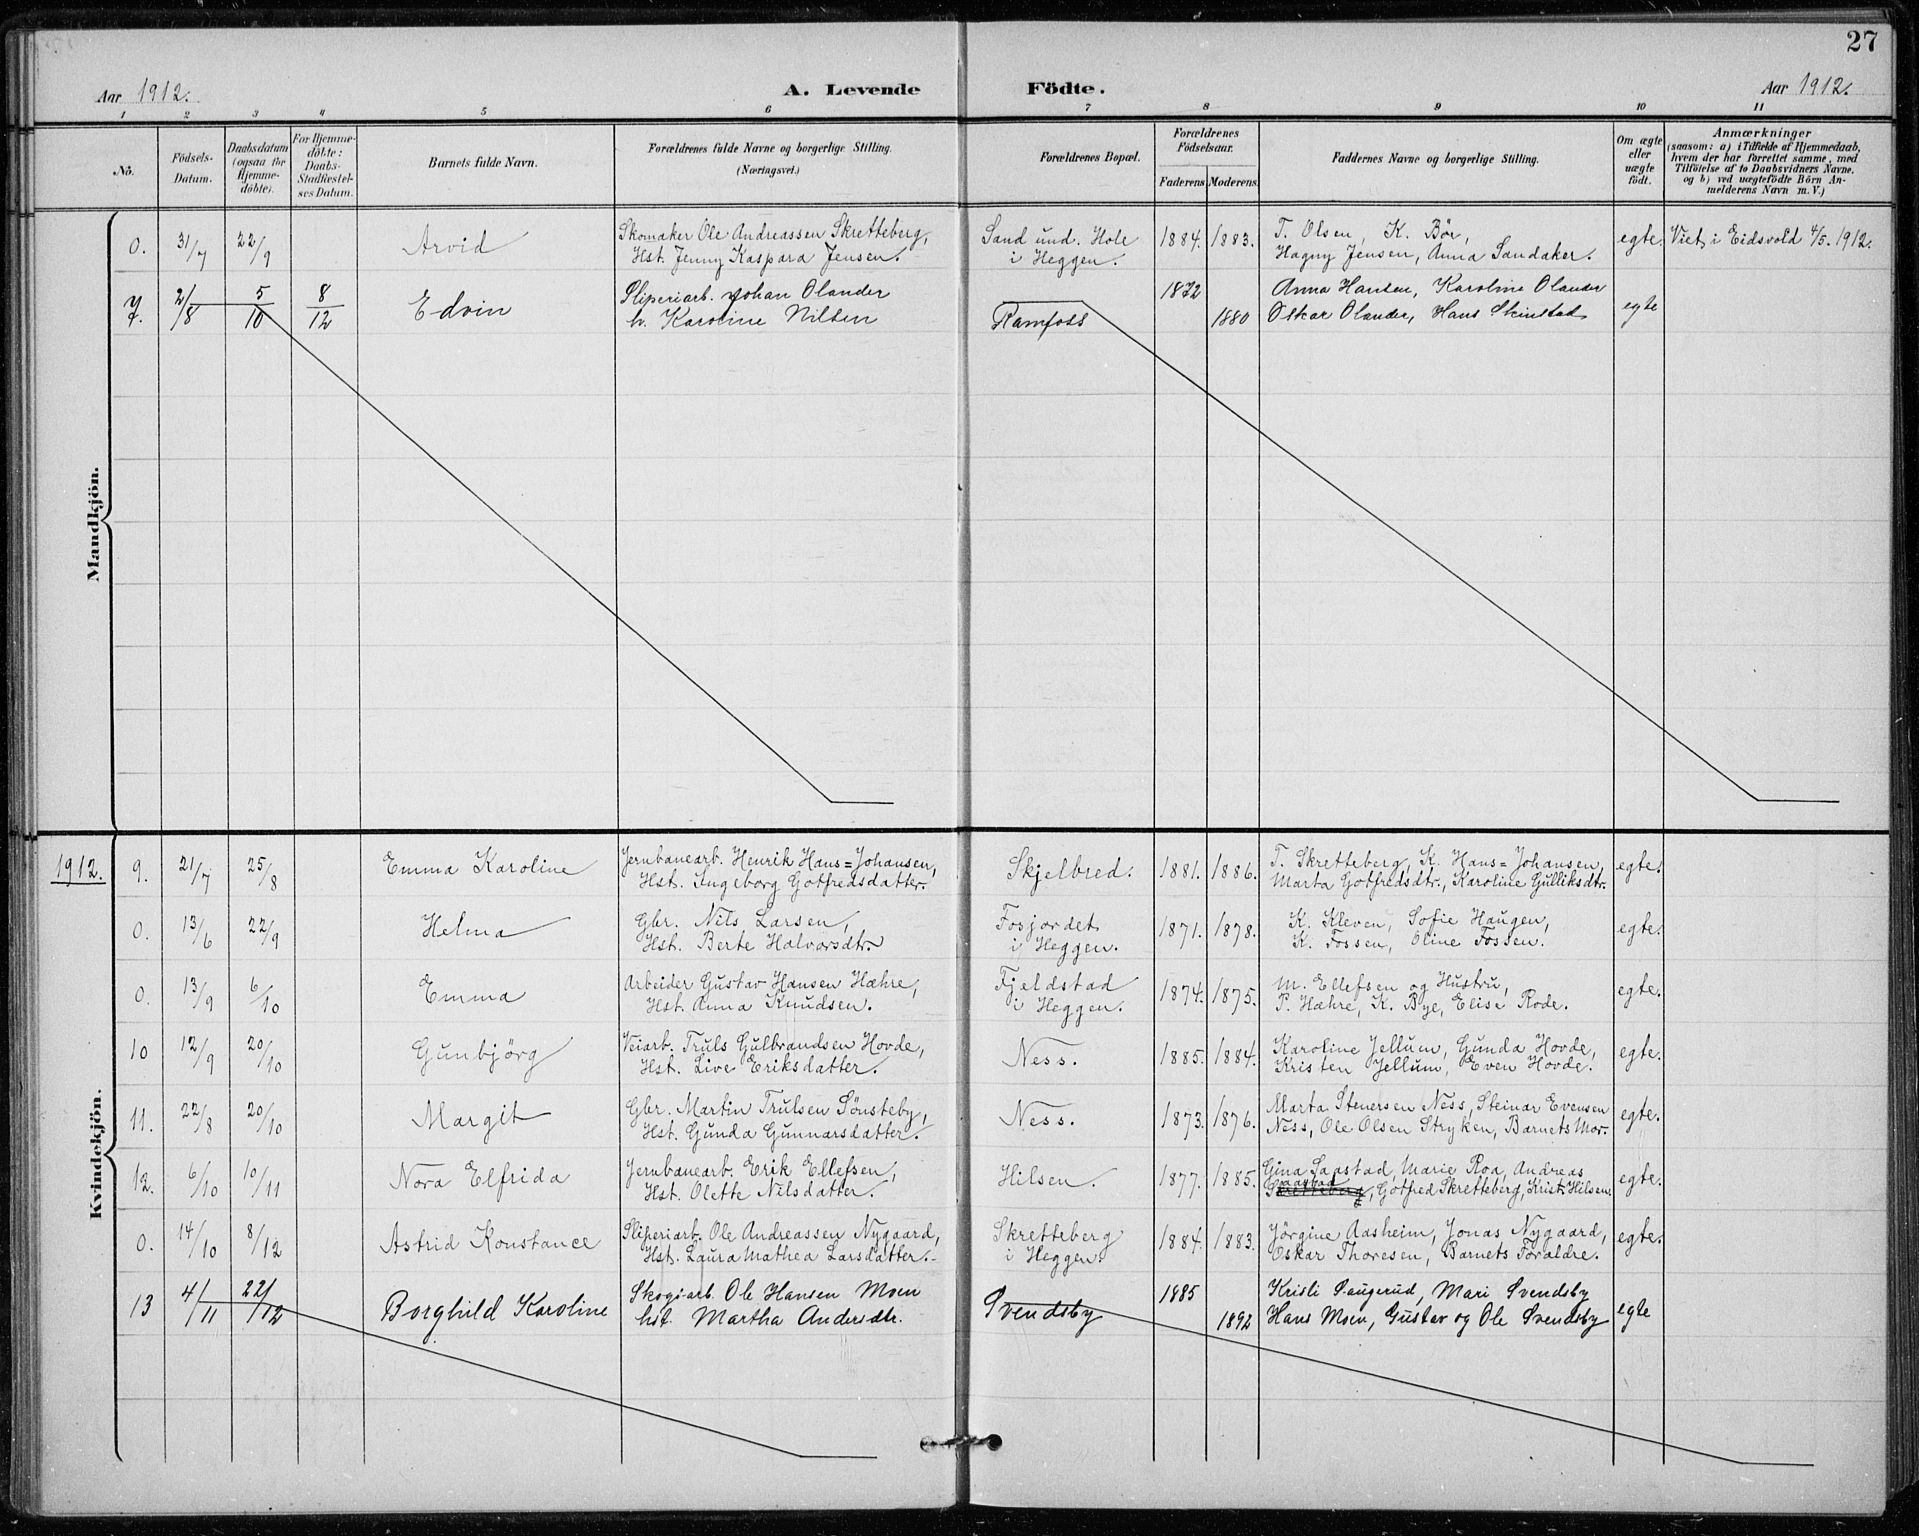 27
Aar 1912. A. Levende Födte. Aar 1912.
1 2 3 4 5 6 7 8 9 10 11
No. Födsels-Datum. Daabsdatum (ogsaa for Hjemmedöbte). For Hjemmedöbte: Daabs-Stadfæstelses Datum. Barnets fulde Navn. Forældrenes fulde Navne og borgerlige Stilling. (Næringsvei.) Forældrenes Bopæl. Forældrenes Födselsaar. Faderens Moderens. Faddernes Navne og borgerlige Stilling. Om ægte eller uægte födt. Anmærkninger (saasom: a) i Tilfælde af Hjemmedaab, hvem der har forrettet samme, med Tilföielse af to Daabsvidners Navne, og b) ved uægtefödte Börn Anmelderens Navn m. V.)
Mandkjön.
0. 31/7 22/9 Arvid Skomaker Ole Andreassen Skretteberg, Sand und. Hole 1884. 1883. T. Olsen, K. Bör, egte. Viet i Eidsvold 4/5. 1912.
Hst. Jenny Kaspara Jensen. i Heggen. Hagny Jensen, Anna Sandaker.
7. 2/8 5/10 8/12 Edvin Sliperiarb. Johan Olander 1872 Anna Hansen, Karoline Olander
h. Karoline Nilsen Ramfoss 1880 Oskar Olander, Hans Skinstad egte
Kvindekjön.
1912. 9. 21/7 25/8 Emma Karoline Jernbanearb. Henrik Hans=Johansen, Skjelbred. 1881. 1886. T. Skretteberg, K. Hans=Johansen, egte.
Hst. Ingeborg Gotfredsdatter. Marta Gotfredsdtr., Karoline Gulliksdtr.
0. 13/6 22/9 Helma Gbr. Nils Larsen, Fosjordet 1871. 1878. K. Kleven, Sofie Haugen, egte.
Hst. Berte Halvorsdtr. i Heggen. K. Fossen, Oline Fossen.
0. 13/9 6/10 Emma Arbeider Gustav Hansen Hæhre, Fjeldstad 1874. 1875. M. Ellefsen og Hustru, egte.
Hst. Anna Knudsen. i Heggen. P. Hæhre, K. Bye, Elise Rode.
10 12/9 20/10 Gunbjörg Veiarb. Truls Gulbrandsen Hovde, Ness. 1885. 1884. Karoline Jellum, Gunda Hovde, egte.
Hst. Live Eriksdatter. Kristen Jellum, Even Hovde.
11. 22/8 20/10 Margit Gbr. Martin Trulsen Sönsteby, Ness. 1873. 1876. Marta Stenersen Ness, Steinar Evensen egte.
Hst. Gunda Gunnarsdatter. Ness, Ole Olsen Stryken, Barnets Mor.
12. 6/10 10/11 Nora Elfrida Jernbanearb. Erik Ellefsen, Hilsen. 1877. 1885. Gina Saastad, Marie Roa, Andreas egte.
Hst. Olette Nilsdatter. Saastad, Gotfred Skretteberg, Krist. Hilsen.
0. 14/10 8/12 Astrid Konstance Sliperiarb. Ole Andreassen Nygaard, Skretteberg 1884. 1883. Jörgine Aasheim, Jonas Nygaard, egte.
Hst. Laura Mathea Larsdatter. i Heggen. Oskar Thoresen, Barnets Foraldre.
13 4/11 22/12 Borghild Karoline Skogsarb. Ole Hansen Moen 1885 Kristi Saugerud, Mari Svendsby
hst. Martha Andersdtr. Svendsby 1892 Hans Moen, Gustav og Ole Svendsby egte